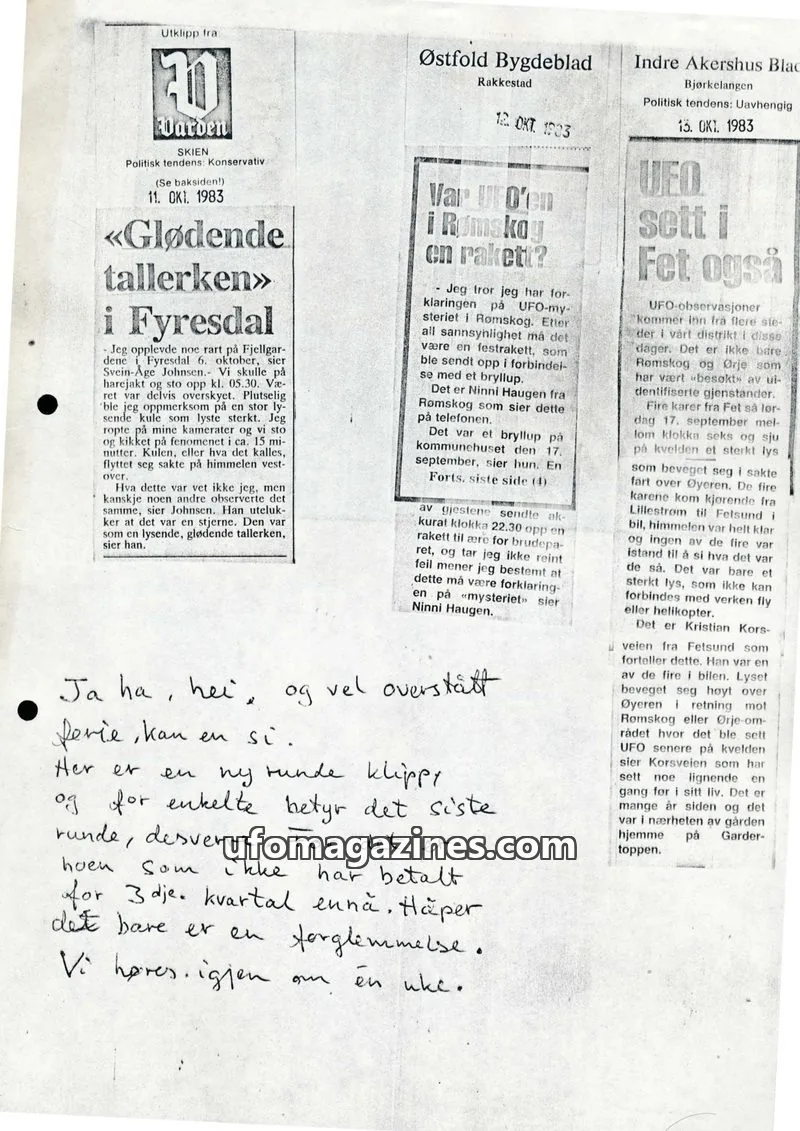 Utklipp fra
V
Varden
SKIEN
Politisk tendens: Konservativ
(Se baksiden!)
11. OKT. 1983
«Glødende
tallerken»
i Fyresdal
- Jeg opplevde noe rart på Fjellgar-
dene i Fyresdal 6. oktober, sier
Svein-Åge Johnsen.- Vi skulle på
harejakt og sto opp kl. 05.30. Væ-
ret var delvis overskyet. Plutselig
ble jeg oppmerksom på en stor ly-
sende kule som lyste sterkt. Jeg
ropte på mine kamerater og vi sto
og kikket på fenomenet i ca. 15 mi-
nutter. Kulen, eller hva det kalles,
flyttet seg sakte på himmelen vest-
over.
Hva dette var vet ikke jeg, men
kanskje noen andre observerte det
samme, sier Johnsen. Han uteluk-
ker at det var en stjerne. Den var
som en lysende, glødende tallerken,
sier han.
Østfold Bygdeblad
Rakkestad
12. OKT. 1983
Var UFO'en
i Rømskog
en rakett?
- Jeg tror jeg har for-
klaringen på UFO-my-
steriet i Rømskog. Etter
all sannsynlighet må det
være en festrakett, som
ble sendt opp i forbindel-
se med et bryllup.
Det er Ninni Haugen fra
Rømskog som sier dette
på telefonen.
Det var et bryllup på
kommunehuset den 17.
september, sier hun. En
Forts. siste side (4)
av gjestene sendte ak-
kurat klokka 22.30 opp en
rakett til ære for brudepa-
ret, og tar jeg ikke reint
feil mener jeg bestemt at
dette må være forklaring-
en på «mysteriet» sier
Ninni Haugen.
Indre Akershus Blad
Bjørkelangen
Politisk tendens: Uavhengig
13. OKT. 1983
UFO
sett i
Fet også
UFO-observasjoner
kommer inn fra flere ste-
der i vårt distrikt i disse
dager. Det er ikke bare
Rømskog og Ørje som
har vært «besøkt» av ui-
dentifiserte gjenstander.
Fire karer fra Fet så lør-
dag 17. september mel-
lom klokka seks og sju
på kvelden et sterkt lys
som beveget seg i sakte
fart over Øyeren. De fire
karene kom kjørende fra
Lillestrøm til Fetsund i
bil, himmelen var helt klar
og ingen av de fire var
istand til å si hva det var
de så. Det var bare et
sterkt lys, som ikke kan
forbindes med verken fly
eller helikopter.
Det er Kristian Kors-
veien fra Fetsund som
forteller dette. Han var en
av de fire i bilen. Lyset
beveget seg høyt over
Øyeren i retning mot
Rømskog eller Ørje-om-
rådet hvor det ble sett
UFO senere på kvelden
sier Korsveien som har
sett noe lignende en
gang før i sitt liv. Det er
mange år siden og det
var i nærheten av gården
hjemme på Garder-
toppen.
Ja ha, hei, og vel overstått
ferie, kan en si.
Her er en ny runde klipp,
og for enkelte betyr det siste
runde,
ufomagazines.com
noen som ikke har betalt
for 3dje. kvartal ennå. Håper
det bare er en forglemmelse.
Vi høres igjen om én uke.